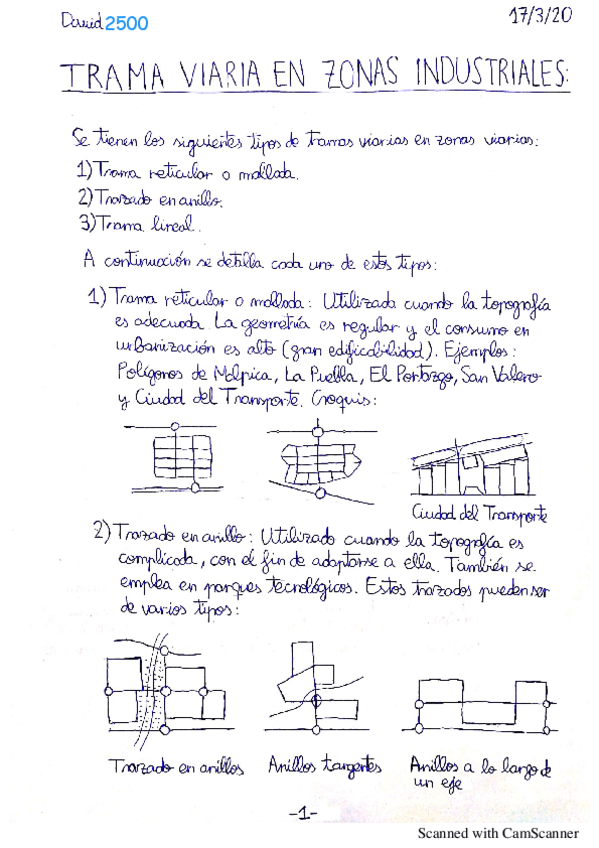 David2500
17/3/20
TRAMA VIARIA EN ZONAS INDUSTRIALES:
Se tienen los siguientes tipos de tramas viarias en zonas viarias:
1) Trama reticular o mallada.
2) Trazado en anillo.
3) Trama lineal.
A continuación se detalla cada uno de estos tipos:
1) Trama reticular o mallada: Utilizada cuando la topografía
es adecuada. La geometría es regular y el consumo en
urbanización es alto (gran edificabilidad). Ejemplos:
Polígonos de Malpica, La Puebla, El Portazgo, San Valero
y Ciudad del Transporte. Croquis:
Ciudad del Transporte
2) Trazado en anillo: Utilizado cuando la topografía es
complicada, con el fin de adaptarse a ella. También se
emplea en parques tecnológicos. Estos trazados pueden ser
de varios tipos:
Trazado en anillos
Anillos tangentes
Anillos a lo largo de
un eje
-1-
Scanned with CamScanner